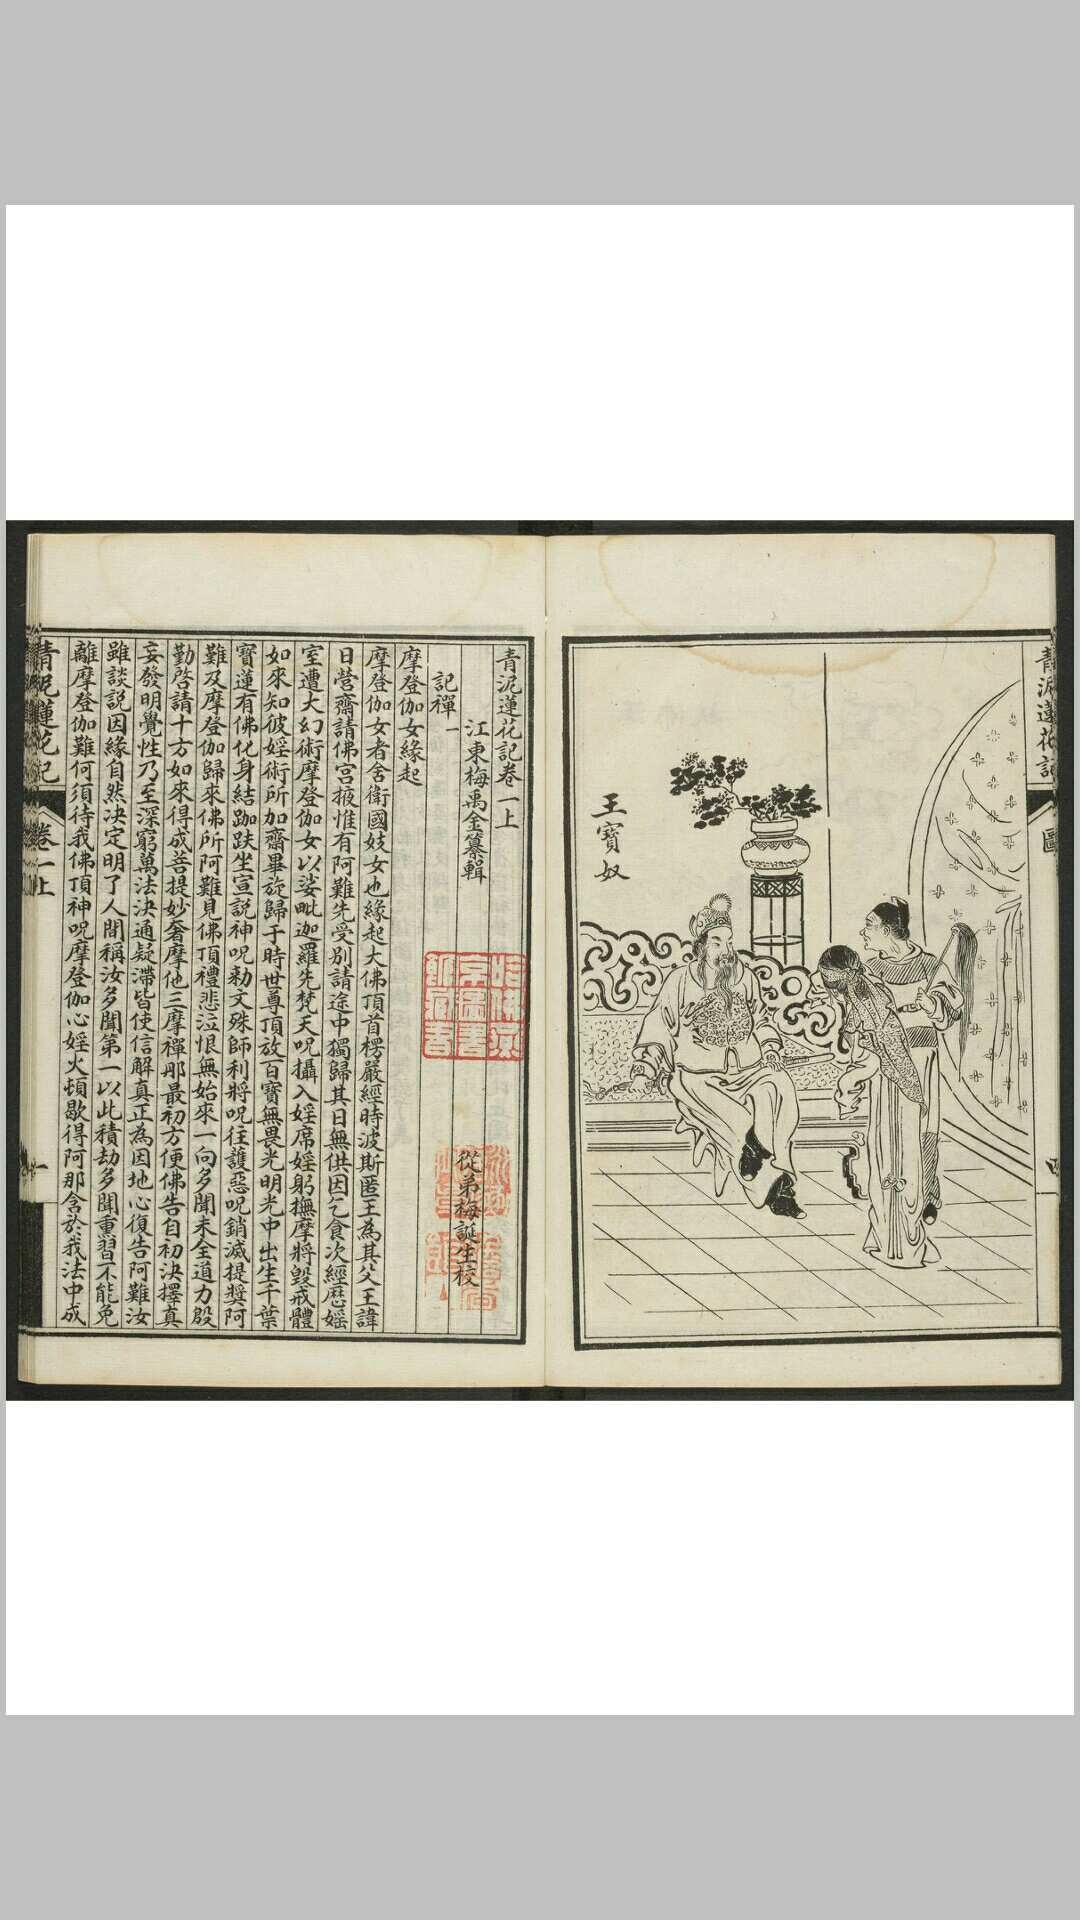 青泥蓮花記
圖
四
王寶奴
青泥蓮花記卷一上
江東梅禹金纂輯
從弟梅誕生校
記禪一
摩登伽女緣起
摩登伽女者舍衛國妓女也緣起大佛頂首楞嚴經時波斯匿王為其父王諱
日營齋請佛宮掖惟有阿難先受別請途中獨歸其日無供因乞食次經歷婬
室遭大幻術摩登伽女以娑毗迦羅先梵天呪攝入婬席婬躬撫摩將毀戒體
如來知彼婬術所加齋畢旋歸于時世尊頂放百寶無畏光明光中出生千葉
寶蓮有佛化身結跏趺坐宣説神呪勑文殊師利將呪往護惡呪銷滅提奬阿
難及摩登伽歸來佛所阿難見佛頂禮悲泣恨無始來一向多聞未全道力殷
勤啓請十方如來得成菩提妙奢摩他三摩禪那最初方便佛告自初決擇真
妄發明覺性乃至深窮萬法決通疑滯皆使信解真正為因地心復告阿難汝
雖談説因緣自然決定明了人間稱汝多聞第一以此積劫多聞熏習不能免
離摩登伽難何須待我佛頂神呪摩登伽心婬火頓歇得阿那含於我法中成
青泥蓮花記
卷一上
一